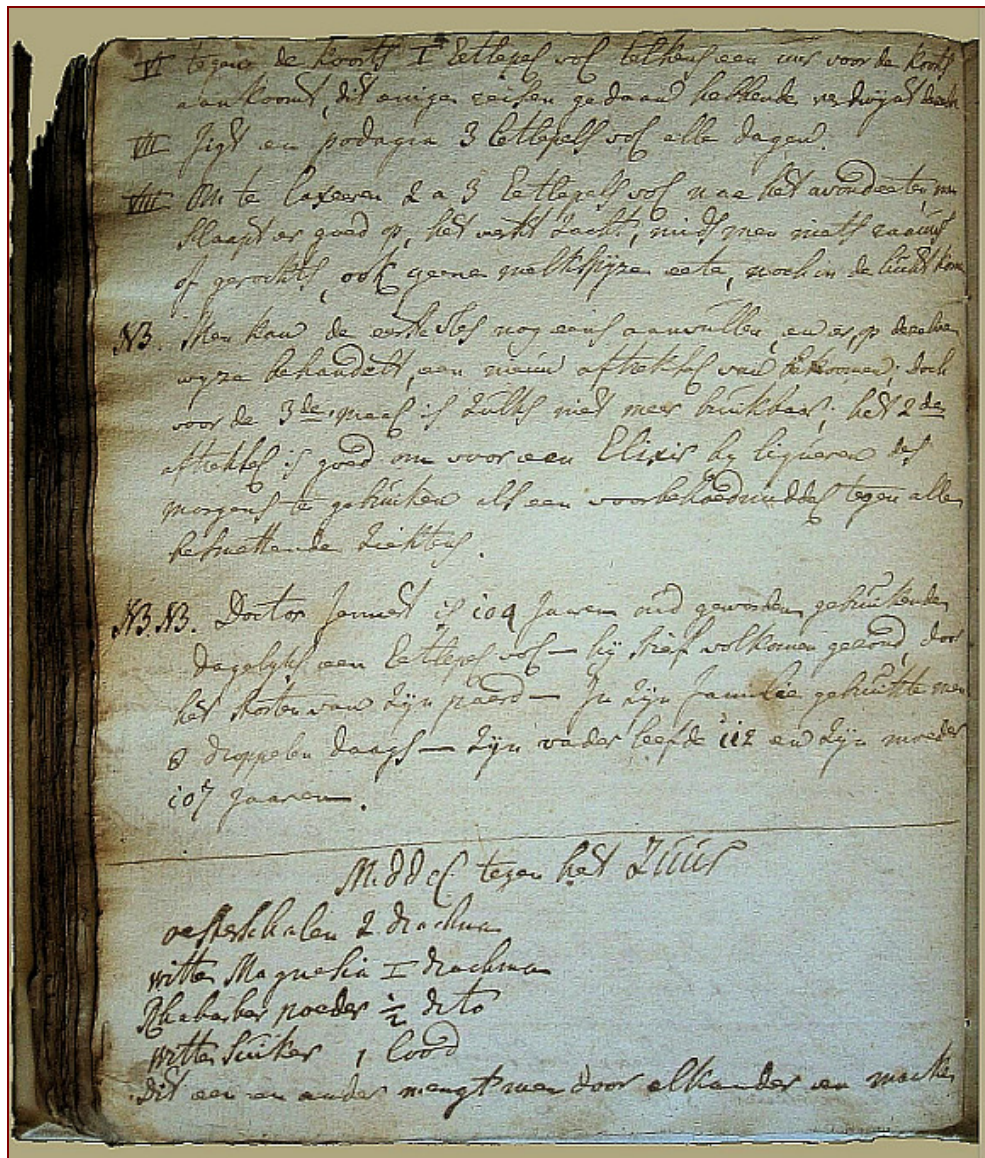 VI tegens de koorts I Eetlepel vol telkens een uur voor de koorts
aankoomt, dit eenige reisen gedaan hebbende verdwijnt deselve
VII Jigt en podagra 3 Eetlepels vol alle dagen.
VIII Om te laxeeren 2 a 3 Eetlepels vol nae het avondeeten, men
slaapt er goed op, het werkt zacht, mids men niets raauws
of gerookts, ook geene melkspijze eete, noch in de lucht kome
NB. Men kan de eerste fles nog eens aanvullen, en er, op dezelve
wyze behandelt, een nieuw aftreksel van bekoomen; doch
voor de 3de maal is zulks niet meer bruikbaar; het 2de
aftreksel is goed om voor een Elixir by liqueren des
morgens te gebruiken als een voorbehoedmiddel tegen alle
besmettende ziektens.
NB.NB. Doctor Jernest is 104 Jaren oud geworden gebruikende
dagelyks een Eetlepel vol — hy stief volkomen gezond, door
het storten van zijn paard — In zijn familie gebruikte men
8 droppelen daags — zijn vader leefde 112 en zijn moeder
107 Jaaren.
Middel tegen het Zuur
oesterschalen 2 drachma
witte Magnesia I drachma
Rhabarber poeder ½ dito
witte suiker 1 Lood
Dit een en ander mengt men door elkander en maake